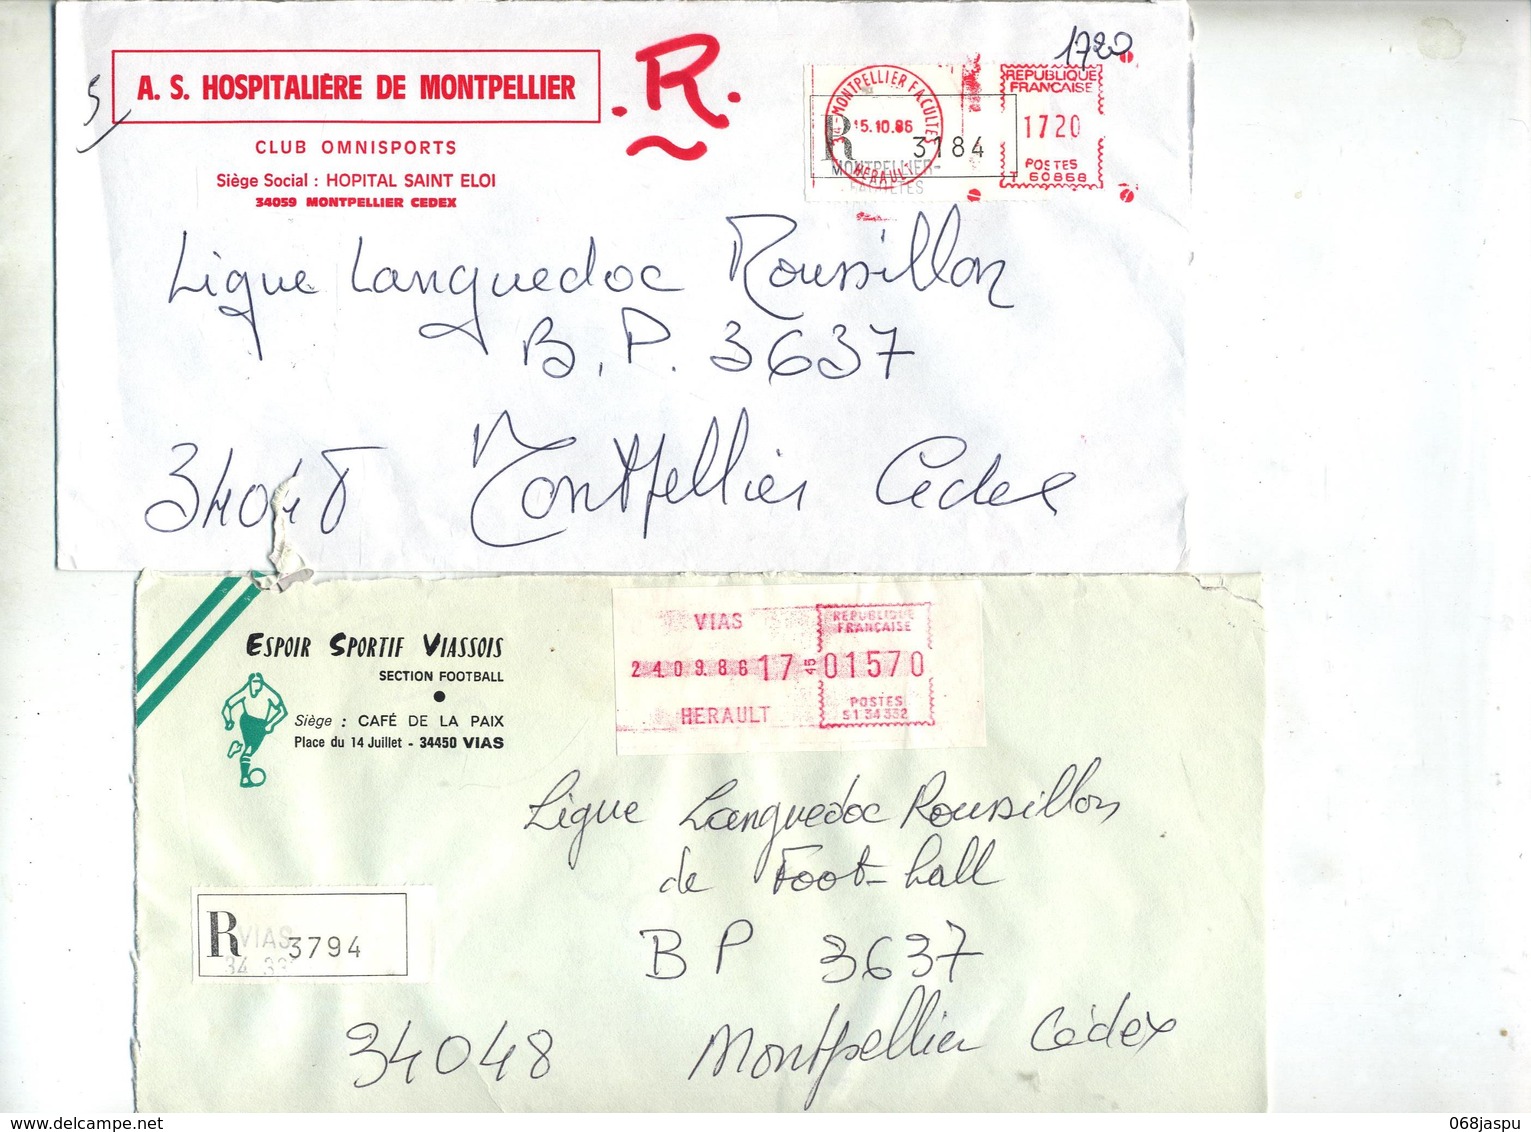 1720
5
A. S. HOSPITALIÈRE DE MONTPELLIER
.R.
CLUB OMNISPORTS
Siège Social : HOPITAL SAINT ELOI
34059 MONTPELLIER CEDEX
34 MONTPELLIER FACULTES
15.10.86
HERAULT
R 3184
MONTPELLIER-
FACULTES
REPUBLIQUE
FRANÇAISE
1720
POSTES
T 60868
Ligue Languedoc Roussillon
B.P. 3637
34048 Montpellier Cedex
ESPOIR SPORTIF VIASSOIS
SECTION FOOTBALL
Siège : CAFÉ DE LA PAIX
Place du 14 Juillet - 34450 VIAS
VIAS
24.09.86 17 45
HERAULT
REPUBLIQUE
FRANÇAISE
01570
POSTES
S1 34 332
Ligue Languedoc Roussillon
de Foot-ball
BP 3637
34048 Montpellier Cédex
R VIAS 3794
34 33
delcampe.net
068jaspu